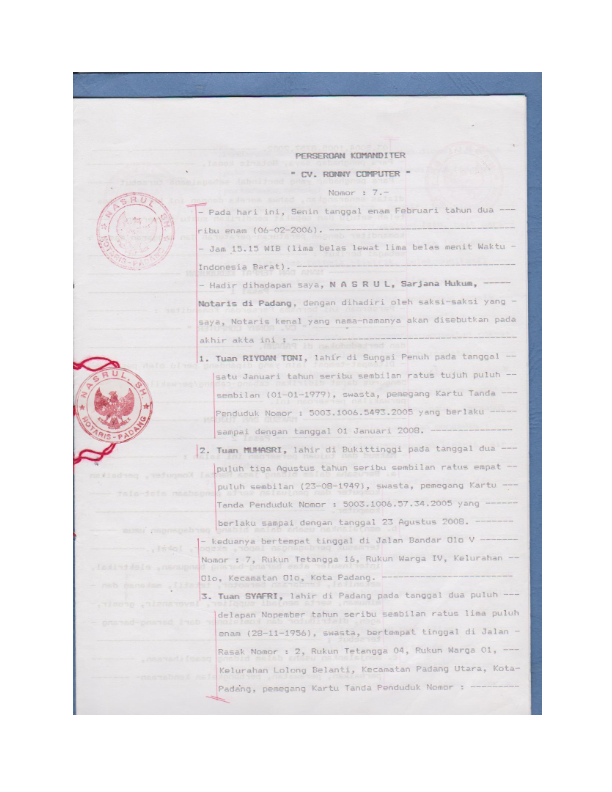 PERSEROAN KOMANDITER
" CV. RONNY COMPUTER "
Nomor : 7.-
- Pada hari ini, Senin tanggal enam Februari tahun dua ---
ribu enam (06-02-2006). ---
- Jam 15.15 WIB (lima belas lewat lima belas menit Waktu -
Indonesia Barat). ---
- Hadir dihadapan saya, N A S R U L, Sarjana Hukum, ---
Notaris di Padang, dengan dihadiri oleh saksi-saksi yang -
saya, Notaris kenal yang nama-namanya akan disebutkan pada
akhir akta ini : ---
1. Tuan RIYDAN TONI, lahir di Sungai Penuh pada tanggal --
satu Januari tahun seribu sembilan ratus tujuh puluh --
sembilan (01-01-1979), swasta, pemegang Kartu Tanda ---
Penduduk Nomor : 5003.1006.5493.2005 yang berlaku ---
sampai dengan tanggal 01 Januari 2008. ---
2. Tuan MUHASRI, lahir di Bukittinggi pada tanggal dua ---
puluh tiga Agustus tahun seribu sembilan ratus empat --
puluh sembilan (23-08-1949), swasta, pemegang Kartu ---
Tanda Penduduk Nomor : 5003.1006.57.34.2005 yang ---
berlaku sampai dengan tanggal 23 Agustus 2008. ---
- keduanya bertempat tinggal di Jalan Bandar Olo V ---
Nomor : 7, Rukun Tetangga 16, Rukun Warga IV, Kelurahan --
Olo, Kecamatan Olo, Kota Padang. ---
3. Tuan SYAFRI, lahir di Padang pada tanggal dua puluh ---
delapan Nopember tahun seribu sembilan ratus lima puluh
enam (28-11-1956), swasta, bertempat tinggal di Jalan -
Rasak Nomor : 2, Rukun Tetangga 04, Rukun Warga 01, ---
Kelurahan Lolong Belanti, Kecamatan Padang Utara, Kota-
Padang, pemegang Kartu Tanda Penduduk Nomor : ---
NASRUL SH
NOTARIS-PADANG
NASRUL, SH
NOTARIS-PADANG